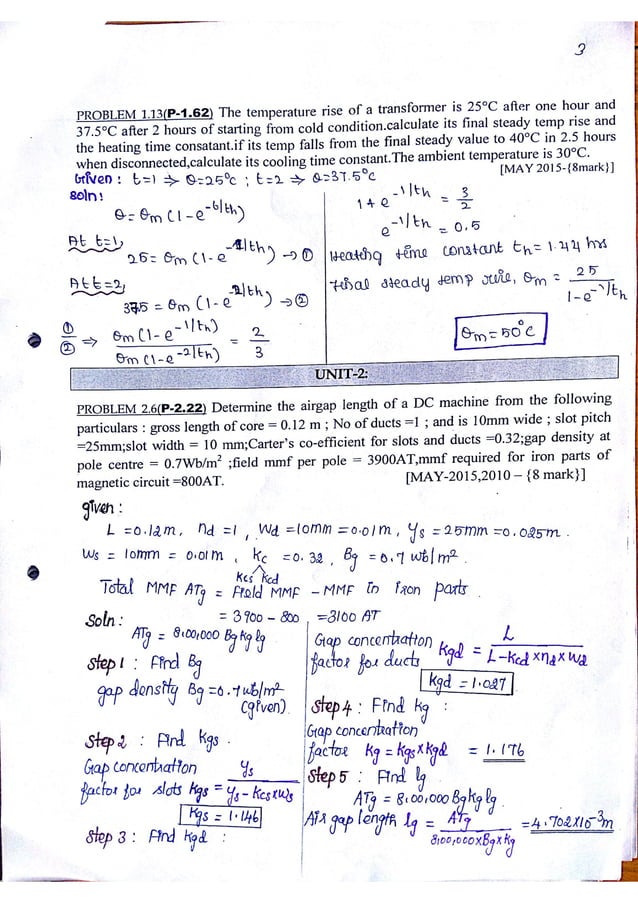 3
PROBLEM 1.13(P-1.62) The temperature rise of a transformer is 25°C after one hour and
37.5°C after 2 hours of starting from cold condition.calculate its final steady temp rise and
the heating time consatant.if its temp falls from the final steady value to 40°C in 2.5 hours
when disconnected,calculate its cooling time constant.The ambient temperature is 30°C.
[MAY 2015-{8mark}]
Given : t=1 ⇒ θ=25°C ; t=2 ⇒ θ=37.5°C
Soln:
θ = θm (1-e^-t/th)
At t=1,
25 = θm (1-e^-1/th) → ①
At t=2,
37.5 = θm (1-e^-2/th) → ②
①/② ⇒ θm (1-e^-1/th) / θm (1-e^-2/th) = 2/3
1+e^-1/th = 3/2
e^-1/th = 0.5
Heating time constant th = 1.44 hrs
Final steady temp rise, θm = 25 / 1-e^-1/th
θm = 50°C
UNIT-2:
PROBLEM 2.6(P-2.22) Determine the airgap length of a DC machine from the following
particulars : gross length of core = 0.12 m ; No of ducts =1 ; and is 10mm wide ; slot pitch
=25mm;slot width = 10 mm;Carter's co-efficient for slots and ducts =0.32;gap density at
pole centre = 0.7Wb/m² ;field mmf per pole = 3900AT,mmf required for iron parts of
magnetic circuit =800AT. [MAY-2015,2010 – {8 mark}]
given :
L = 0.12m, nd =1, Wd =10mm =0.01m, ys = 25mm =0.025m.
Ws = 10mm = 0.01m, Kc =0.32, Bg =0.7 wb/m².
Kcs Kcd
Total MMF ATg = Field MMF - MMF in iron parts.
= 3900 - 800 = 3100 AT
Soln:
ATg = 8,00,000 Bg kg lg
Step 1 : Find Bg
gap density Bg =0.7wb/m²
(given).
Step 2 : Find Kgs.
Gap concentration
factor for slots Kgs = ys / ys - Kcs x Ws
Kgs = 1.146
Step 3 : Find Kgd :
Gap concentration
factor for ducts Kgd = L / L-Kcd x nd x Wd
Kgd = 1.027
Step 4 : Find Kg :
Gap concentration
factor Kg = Kgs x Kgd = 1.176
Step 5 : Find lg
ATg = 8,00,000 Bg kg lg.
Air gap length lg = ATg / 8,00,000 x Bg x Kg = 4.702 x 10^-3 m